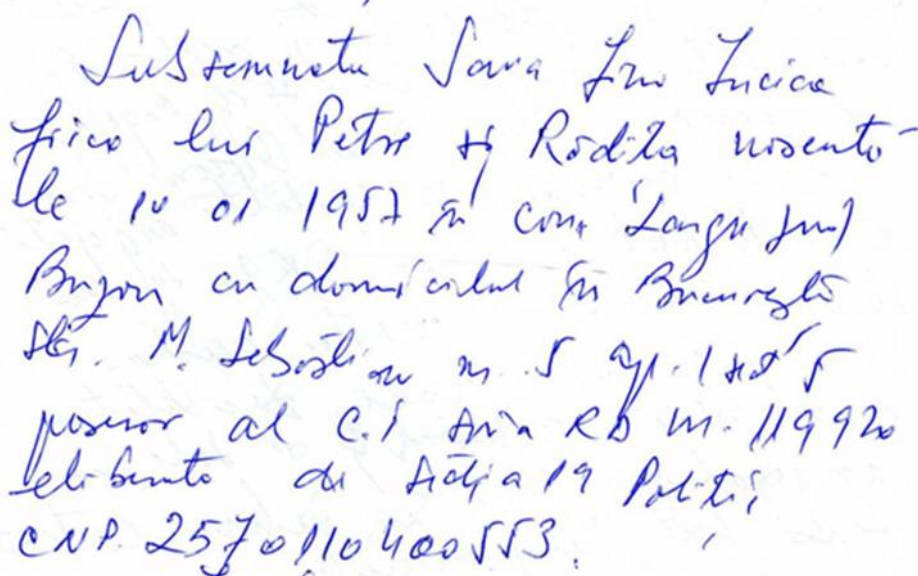 Subsemnata Sava Lucica
fiica lui Petre și Rădița născută
la 10 01 1957 în com Largu jud
Buzău cu domiciliul în București
str. M. Sebastian nr. 5 ap. 1 sect 5
posesor al C.I seria RD nr. 119920
eliberată de Secția 19 Poliție,
CNP. 2570110400553.